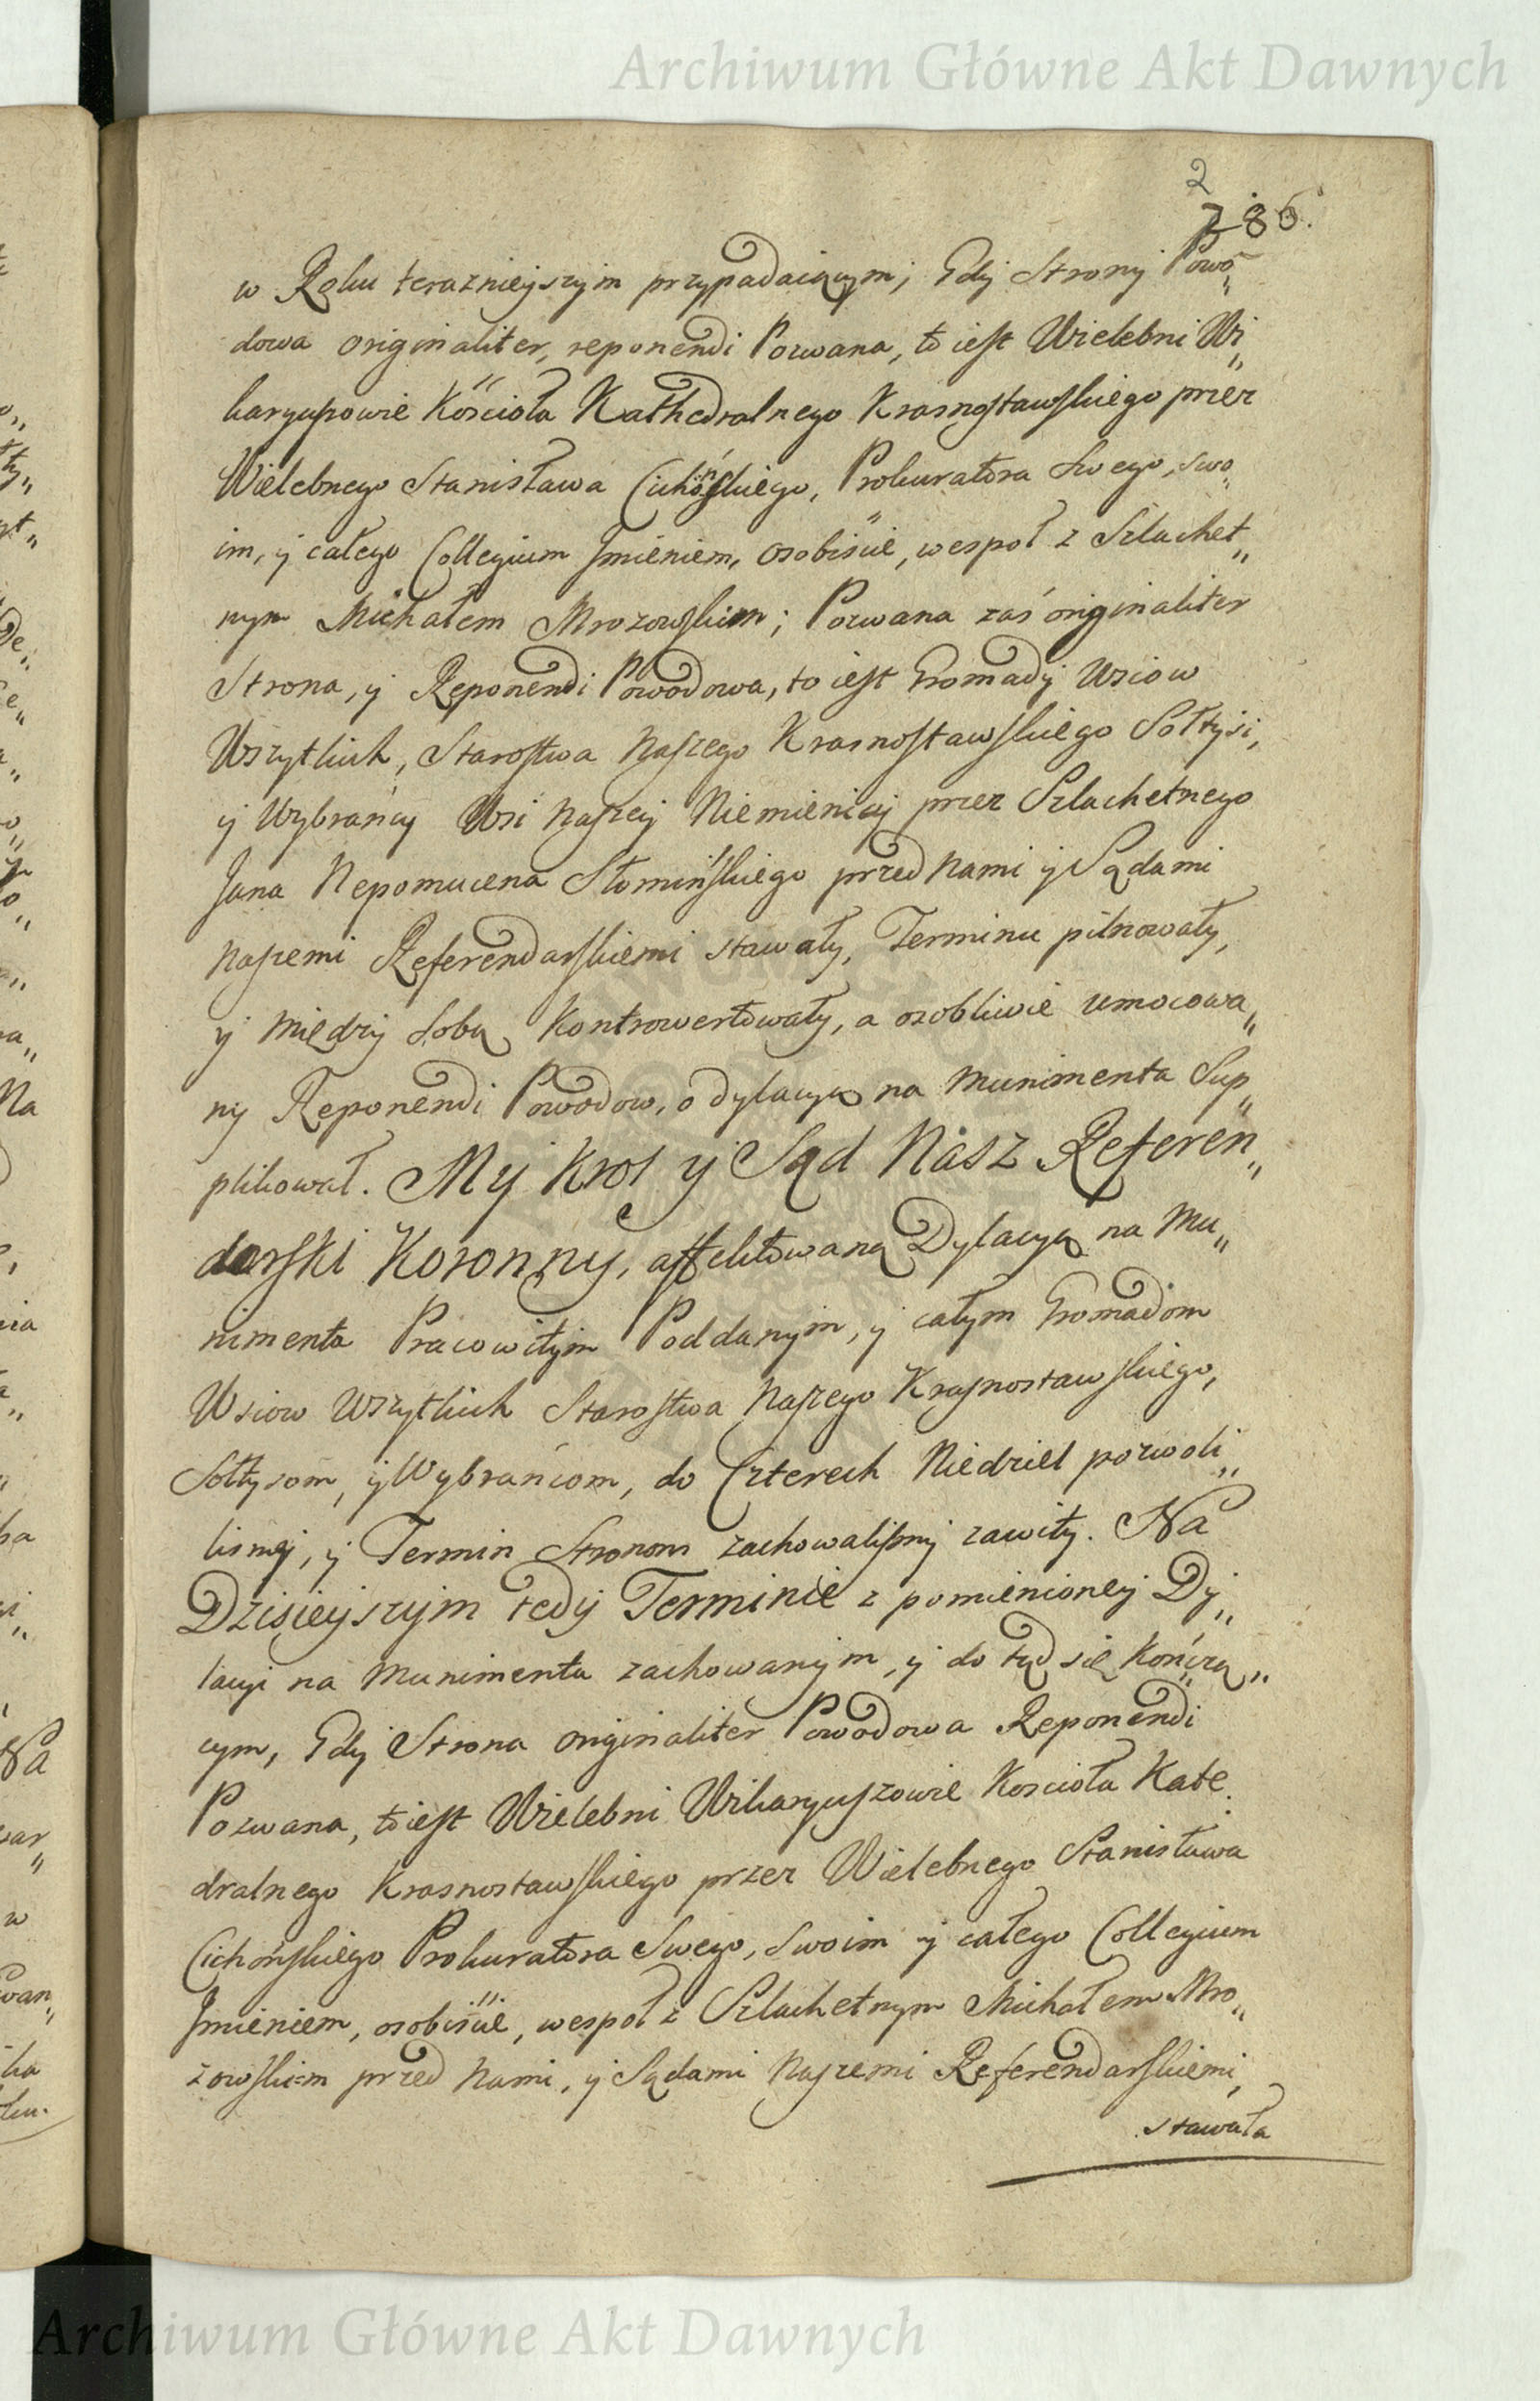 Archiwum Główne Akt Dawnych
2
286.
w Roku terazniejszym przypadaiącym, Gdy Strony Powo„
dowa originaliter, reponendi Pozwana, to iest Wielebni Wi„
karyuszowie Kościoła Kathedralnego Krasnostawskiego przez
Wielebnego Stanisława Cichońskiego, Prokuratora Swego, swo„
im, y całego Collegium Jmieniem, osobiście, wespoł z Szlachet„
nym Michałem Mrozowskim; Pozwana zaś originaliter
Strona, y Reponendi Powodowa, to iest Gromady Wsiow
Wszytkich, Starostwa Naszego Krasnostawskiego Sołtysi,
y Wybrańcy Wsi Naszey Niemienicy przez Szlachetnego
Jana Nepomucena Słomińskiego przed Nami y Sądami
Naszemi Referendarskiemi stawały, Terminu pilnowały,
y między sobą Kontrowertowały, a osobliwie umocowa„
ny Reponendi Powodow, o Dylacyą na Munimenta Sup„
plikował. My Krol y Sąd Nasz Referen„
darski Koronny, affektowaną Dylacyą na Mu„
nimenta Pracowitym Poddanym, y całym Gromadom
Wsiow Wszytkich Starostwa Naszego Krasnostawskiego,
Sołtysom, y Wybrańcom, do Czterech Niedziel pozwoli„
lismy, y Termin Stronom zachowalismy zawity. Na
Dzisieyszym tedy Terminie z pomienioney Dy„
lacyi na Munimenta zachowanym, y do tąd się Kończą„
cym, Gdy Strona originaliter Powodowa Reponendi
Pozwana, to iest Wielebni Wikaryuszowie Koscioła Kate„
dralnego Krasnostawskiego przez Wielebnego Stanisława
Cichońskiego Prokuratora Swego, Swoim y całego Collegium
Jmieniem, osobiście, wespoł z Szlachetnym Michałem Mro„
zowskim przed Nami, y Sądami Naszemi Referendarskiemi,
stawała
Archiwum Główne Akt Dawnych